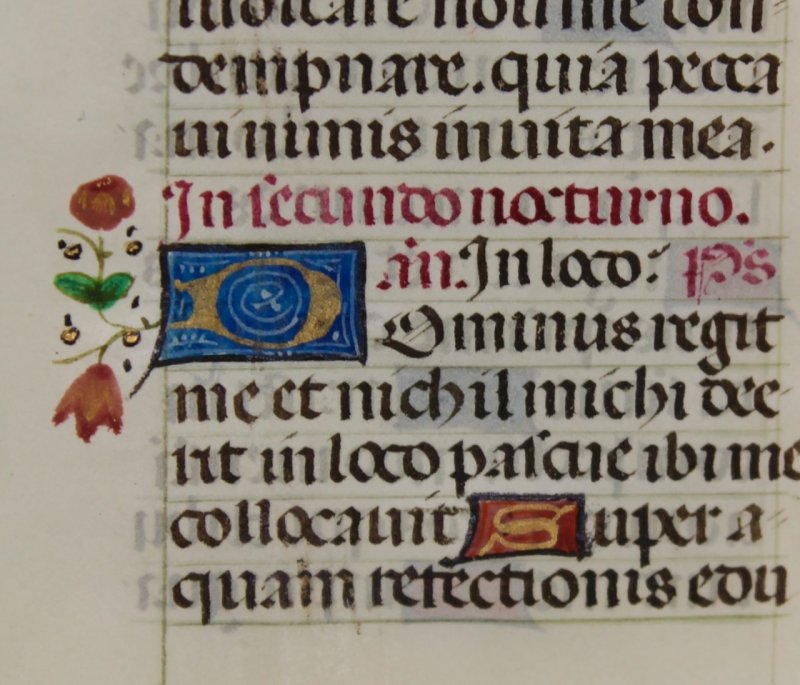 iudicare noli me con-
dempnare. quia pecca
ui nimis in uita mea.
In secundo nocturno.
añ. In loco: Ps
DOminus regit
me et nichil michi dee-
rit in loco pascue ibi me
collocauit Super a-
quam refectionis edu